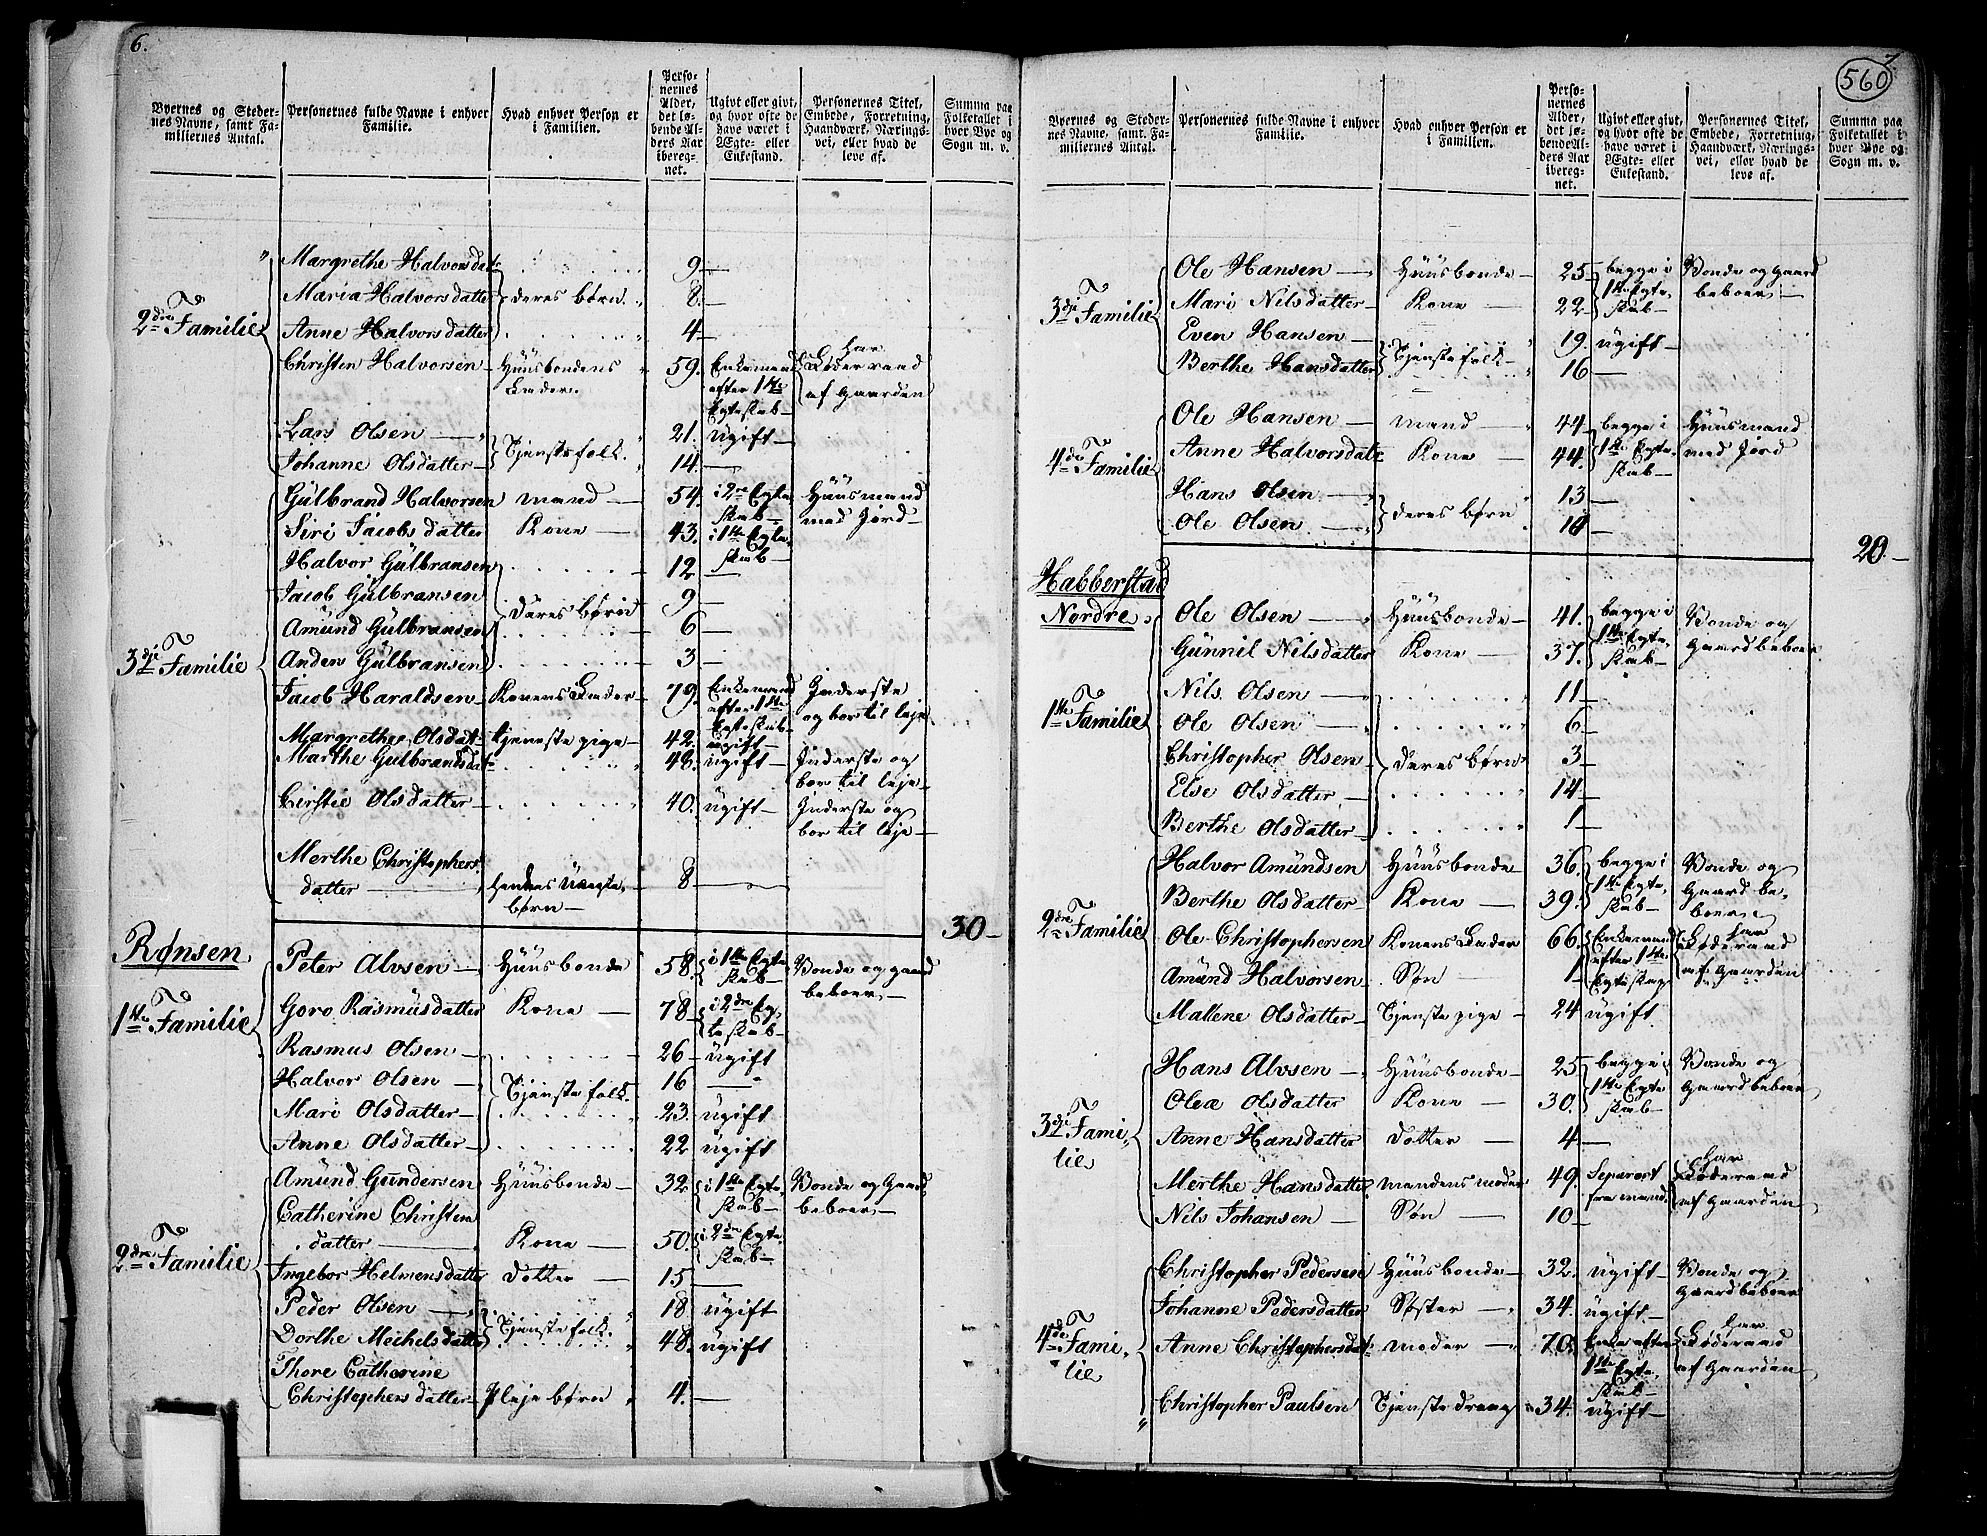 6.
Byernes og Stedernes Navne, samt Familiernes Antal.
Personernes fulde Navne i enhver Familie.
Hvad enhver Person er i Familien.
Personernes Alder, det løbende Alders Aar iberegnet.
Ugivt eller givt, og hvor ofte de have været i Ægte- eller Enkestand.
Personernes Titel, Embede, Forretning, Haandværk, Næringsvei, eller hvad de leve af.
Summa paa Folketallet i hver Bye og Sogn m. v.
Margrethe Halvorsdatr 9 —
2dre Familie Maria Halvorsdatter deres børn 8 —
Anne Halvorsdatter 4 —
Christen Halvorsen Huusbondens Fader 59. Enkemand efter 1ste Egteskab har Føderaad af Gaarden
Lars Olsen — Tjenstefolk. 21. ugift —
Johanne Olsdatter — 14. —
3die Familie Gülbrand Halvorsen mand — 54. i 2re Egteskab — Huusmand med Jord —
Siri Jacobsdatter Kone — 43. i 1ste Egteskab —
Halvor Gülbransen 12 —
Jacob Gülbransen deres børn 9 —
Amünd Gülbransen 6 —
Anden Gülbransen 3 —
Jacob Haraldsen — Konens Fader — 79. Enkemand efter 1ste Egteskab — Inderste og bor til leje
Margrethe Olsdat. tjeneste pige — 42. ugift —
Marthe Gülbrandsdat 48. ugift — Inderste og bor til leje —
Cirstie Olsdatter — 40. ugift — Inderste og bor til leje —
Merthe Christophers
datter — hendes Uægte børn — 8 —
30 —
Rønsen
1ste Familie Peter Alvsen — Huusbonde 58. i 1ste Egteskab — Bonde og gaardbeboer —
Goro Rasmusdatter Kone — 78 — i 2dre Egteskab —
Rasmus Olsen — 26 — ugift
Halvor Olsen — Tjenstefolk. 16 —
Mari Olsdatter — 23 ugift
Anne Olsdatter — 22 ugift
2dre Familie Amünd Gundersen Huusbonde — 32 i 1ste Egteskab — Bonde og Gaardbeboer —
Catherine Christen
datter — Kone — 50. i 2dre Egteskab —
Ingebor Helmensdatter Dotter — 15 —
Peder Olsen — Tjenstefolk. 18 ugift
Dorthe Mechelsdatter 48. ugift
Thore Catherine
Christophersdatter — Pleje børn 4. —
7.
560
Byernes og Stedernes Navne, samt. Familiernes Antal.
Personernes fulde Navne i enhver Familie.
Hvad enhver Person er i Familien.
Personernes Alder, det løbende Alders Aar iberegnet.
Ugivt eller givt, og hvor ofte de have været i Ægte- eller Enkestand.
Personernes Titel, Embede, Forretning, Haandværk, Næringsvei, eller hvad de leve af.
Summa paa Folketallet i hver Bye og Sogn m. v.
3die Familie Ole Hansen — Huusbonde — 25 begge i 1ste Egteskab — Bonde og Gaardbeboer —
Mari Nilsdatter — Kone — 22
Even Hansen — Tjenstefolk — 19. ugift —
Berthe Hansdatter 16 —
4de Familie Ole Hansen — mand — 44 begge i 1ste Egteskab — Huusmand med Jord
Anne Halvorsdatr Kone — 44.
Hans Olsen — deres børn 13 —
Ole Olsen — 10 —
20 —
Habberstad
Nordre
1ste Familie Ole Olsen — Huusbonde — 41. begge i 1ste Egteskab — Bonde og Gaardbeboer
Günnil Nilsdatter Kone — 37.
Nils Olsen — 11 —
Ole Olsen — 6 —
Christopher Olsen deres børn 3 —
Else Olsdatter — 14 —
Berthe Olsdatter — 1 —
2dre Familie Halvor Amündsen Huusbonde — 36. begge i 1ste Egteskab — Bonde og Gaard beboer
Berthe Olsdatter — Kone — 39.
Ole Christophersen Konens Fader 66. Enkemand efter 1ste Egteskap har Føderaad af Gaarden
Amünd Halvorsen Søn — 1
Mallene Olsdatter — Tjenste pige — 24 ugift
3die Familie Hans Alvsen — Huusbonde — 25 begge i 1ste Egteskab — Bonde og Gaardbeboer
Olea Olsdatter Kone — 30.
Anne Hansdatter Dotter — 4 —
Merthe Hansdatter mandens moder 49. Separert fra mand. har Føderaad af Gaarden
Nils Johansen — Søn — 10 —
4de Familie Christopher Pedersen Huusbonde — 32. ugift — Bonde og Gaardbeboer
Johanne Pedersdatter Søster — 34. ugift —
Anne Christophersdatr moder — 70. Enke efter 1ste Egteskab — har Føderaad af Gaarden
Christopher Paulsen Tjenste dreng 34. ugift —